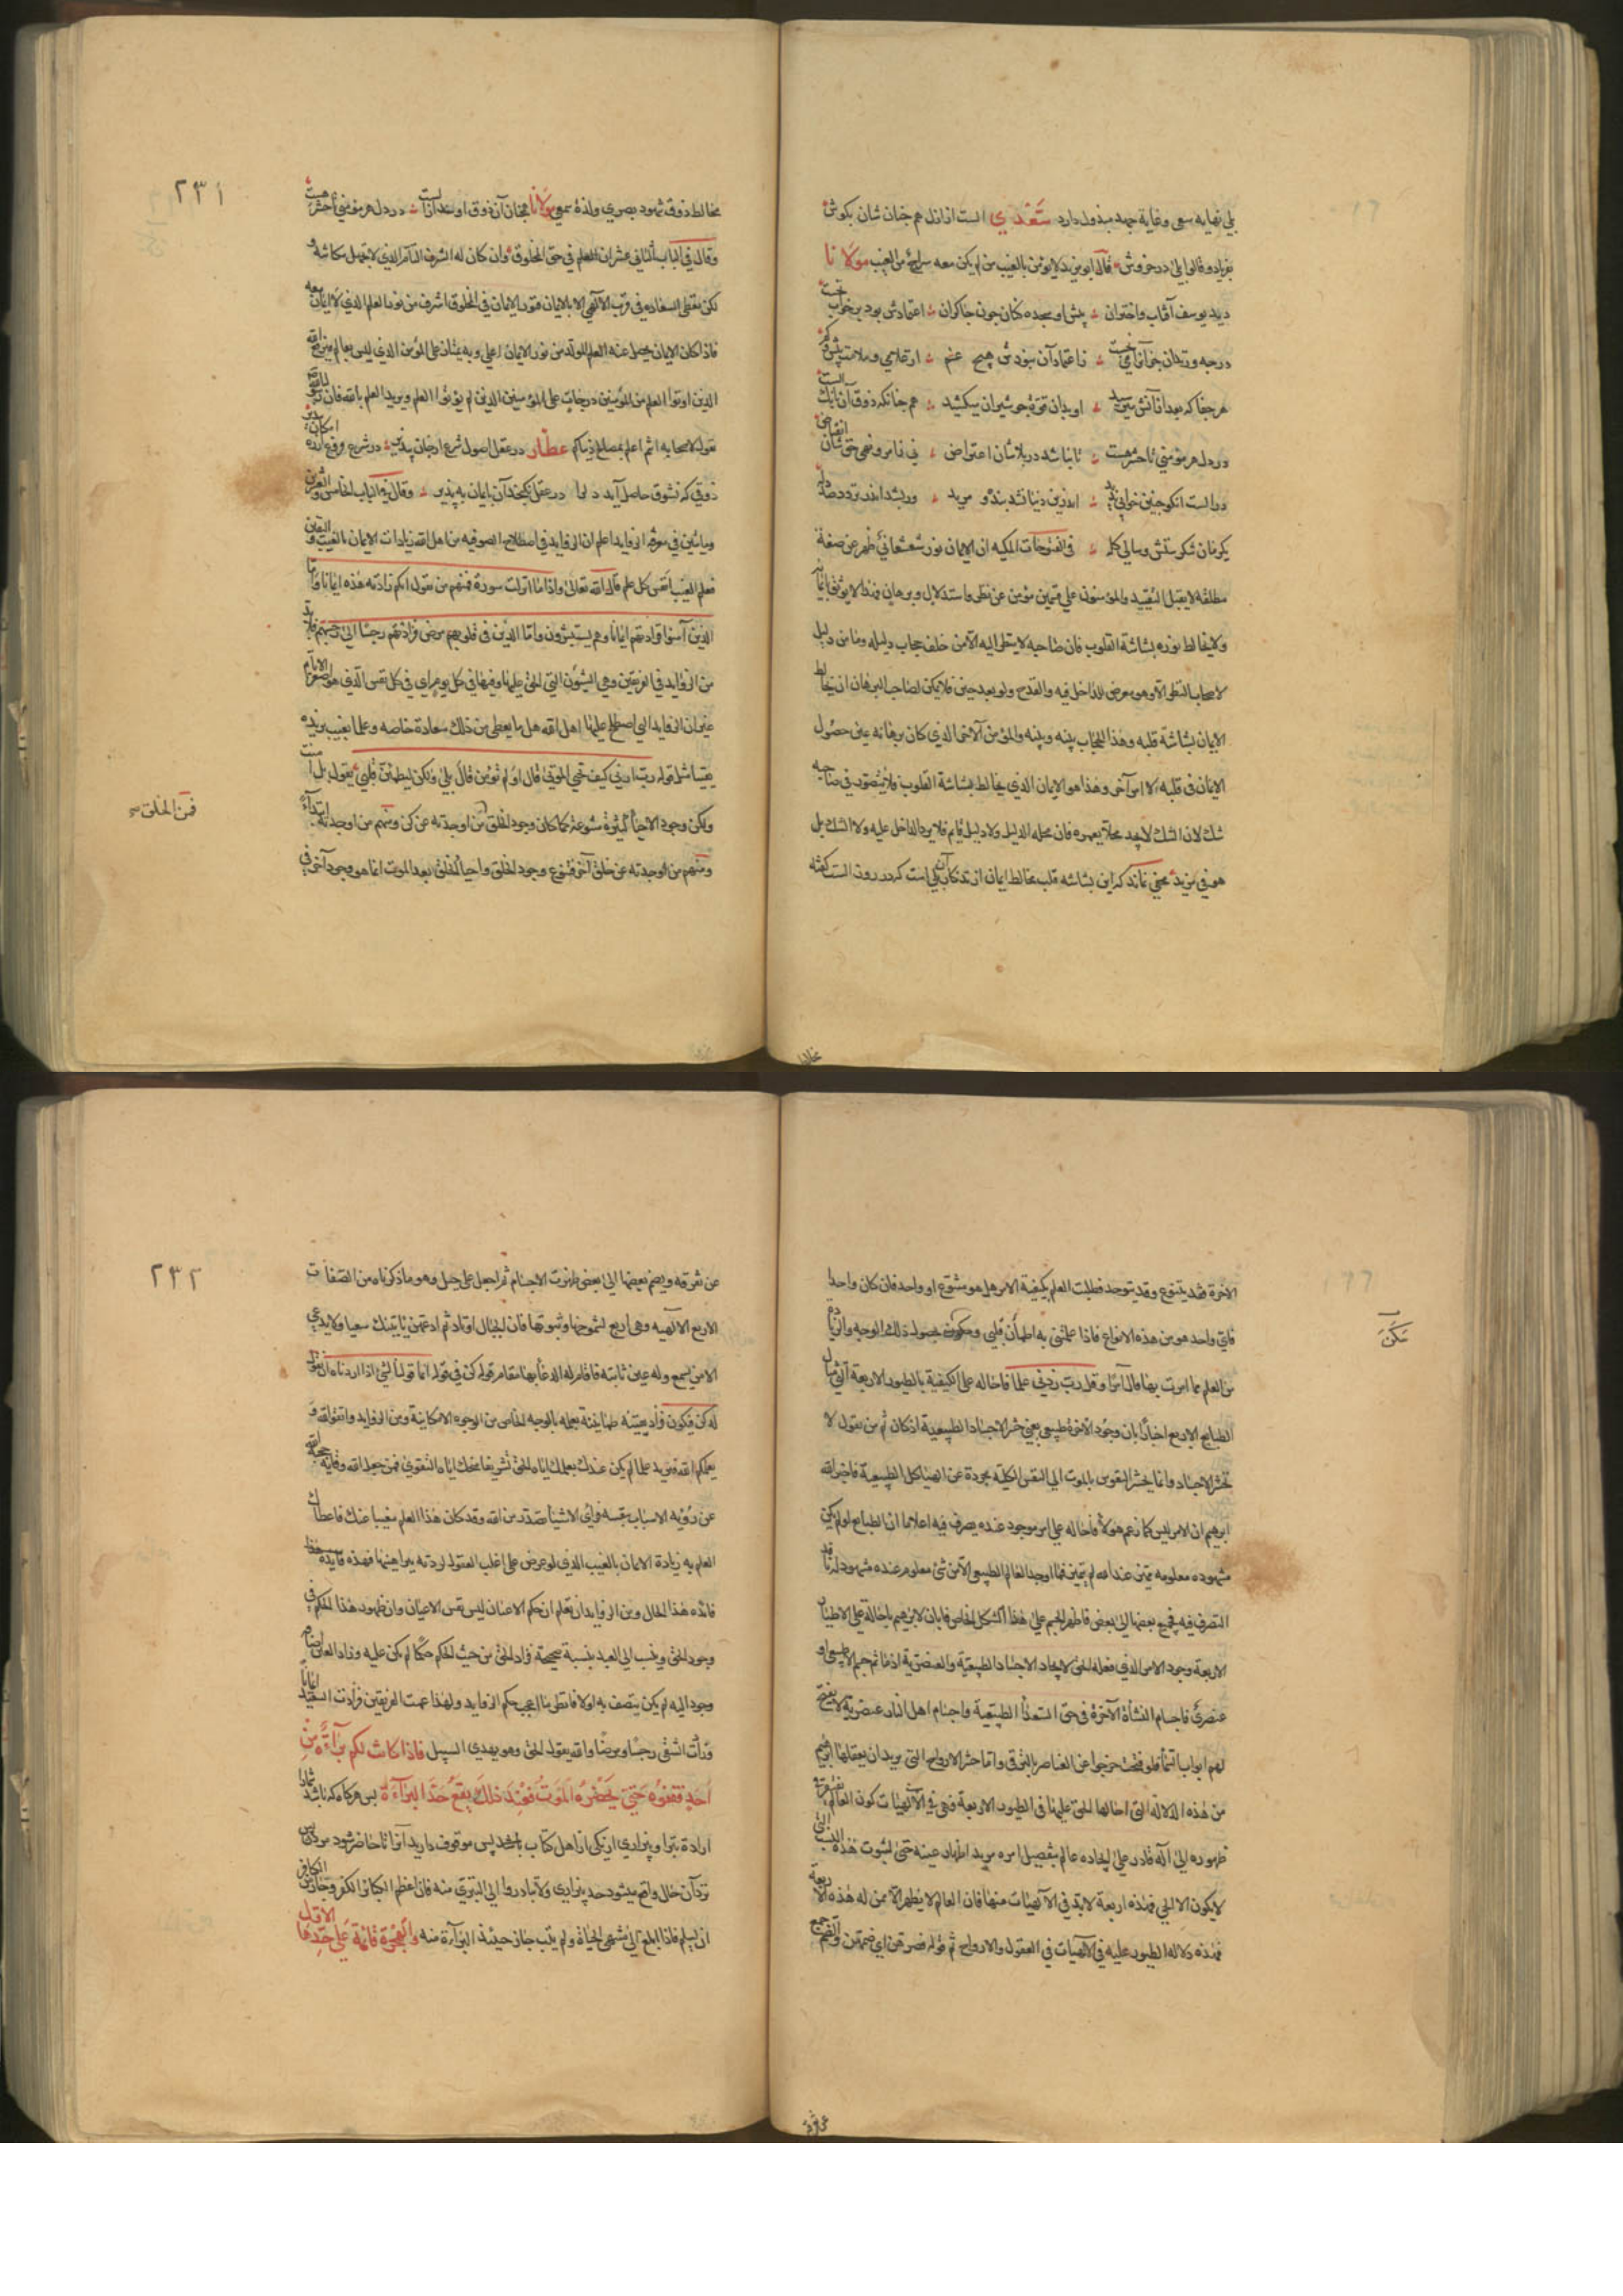 بلی نهایه سعی وغایة جهد مبذول دارد سَعْدی الست از ازل هم چنان شان بکوش
بفریاد وقالوا بلی در خروش قال ابو یزید لا یؤمن بالغیب من لم یکن معه سراج من الغیب مولانا
دید یوسف آفتاب واختران پیش او سجده کنان چون چاکران اعتمادش بود بر خواب
در چه وزندان جز آنرا می زاعتماد آن نبودش هیچ غم از غلامی وملامت بیش وکم
هر جفا که بعد از آتش می رسید او بدان قوة جو شیران میکشید هم چنانکه ذوق آن بانک الست
در دل هر مؤمنی تا حشر هست تا نباشد در بلاشان اعتراض نی ز امر ونهی حق شان انقباض
در الست آنکو چنین خوابی ندید اندرین دنیا نشد بنده ومرید ور بشد اندر تردد صد دله
یکزمان شکرستش وسالی کله فی الفتوحات المکیه ان الایمان نور شعشعانی ظهر عن صفة
مطلقه لا یقبل التقیید والمؤمنون علی قسمین مؤمن عن نظر واستدلال وبرهان فهذا لا یوثق بایمانه
ولا یخالط نوره بشاشة القلوب فان صاحبه لا ینظر الیه الا من خلف حجاب دلیله وما من دلیل
لاصحاب النظر الا وهو معرض للداخل فیه والقدح ولو بعد حین فلا یمکن لصاحب البرهان ان یخالط
الایمان بشاشة قلبه وهذا الحجاب بینه وبینه والمؤمن الآخر الذی کان برهانه عین حصول
الایمان فی قلبه لا امر آخر وهذا هو الایمان الذی یخالط بشاشة القلوب فلا یتصور فی صاحبه
شک لان الشک لا یجد محلا یعمره فان محله الدلیل ولا دلیل قایم فلا یرد الداخل علیه ولا الشک بل
هو فی مزید مخفی نماند که این بشاشه قلب مخالط ایمان از تذکار آن بلی است که در روز الست کفته
٢٣١
مخالط ذوق شهود بصری ولذة سمعی مولانا همچنان آن ذوق او در دل هر مؤمنی تا حشر هست
وقال فی الباب الثانی عشر ان العلم فی حق المخلوق وان کان له الشرف التام الذی لا تجهل مکانته
لکن یعطی السعاده فی قرب الآلهی الا بالایمان فنور الایمان فی المخلوق اشرف من نور العلم الذی لا ایمان معه
فاذا کان الایمان یحصل عنه العلم المتولد من نور الایمان اعلی وبه یمتاز علی المؤمن الذی لیس بعالم فیرفع الله
الذین اوتوا العلم من المؤمنین درجات علی المؤمنین الذین لم یؤتوا العلم ویرید العلم بالله فان رسول الله
یقول لاصحابه انتم اعلم بمصالح دنیاکم عطّار در عقل اصول شرع از جان بپذیر در شرع فروع
ذوقی که زشوق حاصل آید در عقل نکنجد آن بایمان بپذیر وقال فی الباب الخامس والعشرین
ومائتین فی معرفة الزواید اعلم ان الزواید فی اصطلاح الصوفیه من اهل الله زیادات الایمان بالغیب والیقین
فعلم الغیب کل علم قال الله تعالی واذا ما انزلت سورة فمنهم من یقول ایکم زادته هذه ایمانا فاما
الذین آمنوا فزادتهم ایمانا وهم یستبشرون واما الذین فی قلوبهم مرض فزادتهم رجسا الی رجسهم
من الزواید فی الفریقین وهی الشؤن التی الحق علیها وفیها فی کل یوم ای فی کل نفس الذی هو اصغر الایام
غیر ان الزواید التی اصطلح علیها اهل الله هل ما یعطی من ذلک سعادة خاصه وعلما بغیب یزیده
یقینا مثل قوله رب ارنی کیف تحیی الموتی قال اولم تؤمن قال بلی ولکن لیطمئن قلبی یقول بل آمنت
ولکن وجوه الاحیاء کثیرة متنوعة کما کان وجود الخلق من اوجدته عن کن ومنهم من اوجدته ابتداء
ومنهم من اوجدته عن خلق آخر فتنوع وجود الخلق واحیاء الخلق بعد الموت انما هو وجود آخر فی
فمن الخلق صح
الاخرة فقد یتنوع وقد یتوحد فطلبت العلم بکیفیة الامر هل هو متنوع او واحد فان کان واحدا
فای واحد هو من هذه الانواع فاذا علمتنی به اطمأن قلبی بحصول ذلک الوجه والزیادة
من العلم مما امرت بها قال آمرا وقل رب زدنی علما فاحاله علی الکیفیة بالطیور الاربعة التی مثال
الطبایع الاربع اخبارا بان وجود الآخرة طبیعی یعنی حشر الاجساد الطبیعیة اذ کان ثم من یقول لا
تحشر الاجساد وانما یحشر النفوس بالموت الی النفس الکلیة مجردة عن الهیاکل الطبیعیة فاخبر الله
ابرهیم ان الامر لیس کما زعم هؤلاء فاحاله علی امر موجود عنده یصرف فیه اعلاما ان الطبایع لو لم یکن
مشهوده معلومه متمیزة عند الله لم یتمیز فما اوجد العالم الطبیعی الا من شیء معلوم عنده مشهود له نافذ
التصرف فیه فجمع بعضها الی بعض فاظهر الجسم علی هذا الشکل الخاص فابان لابرهیم باحالته علی الاطیار
الاربعة وجود الامر الذی فعله الحق لایجاد الاجساد الطبیعیة والعنصریة اذ ما ثم جسم الا طبیعی او
عنصری فاجسام النشأة الآخرة فی حق السعداء الطبیعیة واجسام اهل النار عنصریة لا یفتح
لهم ابواب السماء فلو فتحت خرجوا عن العناصر بالترقی واما حشر الارواح التی یرید ان یعقلها ابرهیم
من هذه الدلاله التی احالها الحق علیها فی الطیور الاربعة فهی فی الآلهیات کون العالم یفتقر
ظهوره الی اله قادر علی ایجاده عالم بتفصیل امره مرید اظهار عینه حتی لثبوت هذه النسب التی
لا یکون الا لحی فهذه اربعة لا بد فی الآلهیات منها فان العالم لا یظهر الا ممن له هذه الاربعة
فهذه دلاله الطیور علیه فی الآلهیات فی العقول والارواح ثم قوله فصرهن ای ضمهن والضم جمع
٢٣٢
عن تفرقه وبضم بعضها الی بعض ظهرت الاجسام ثم اجعل علی جبل وهو ما ذکرناه من الصفات
الاربع الآلهیه وهی اربع لشموخها وثبوتها فان الجبال اوتاد ثم ادعهن یاتینک سعیا ولا یدعی
الا من یسمع وله عین ثابته فاقام له الدعاء بها مقام قوله کن فی قوله انما قولنا لشیء اذا اردناه ان نقول
له کن فیکون فزاد یقینه طمانینة بعلمه بالوجه الخاص من الوجوه الامکانیة ومن الزواید واتقوا الله و
یعلمکم الله فیزید علما لم یکن عندک یعلمک ایاه الحق تشریفا منحک ایاه التقوی فمن جعل الله وقایة حجبه الله
عن رؤیة الاسباب بنفسه فرأی الاشیاء تصدر من الله وقد کان هذا العلم مغیبا عنک فاعطاک
العلم به زیادة الایمان بالغیب الذی لو عرض علی اغلب العقول لردته ببراهینها فهذه فایدة هذا
فائده هذا الحال ومن الزواید ان تعلم ان حکم الاعیان لیس نفس الاعیان وان ظهور هذا الحکم فی
وجود الحق وینسب الی العبد بنسبة صحیحة فزاد الحق من حیث الحکم حکما لم یکن علیه وزاد العالم
وجودا الیه لم یکن یتصف به اولا فانظر ما اعجب حکم الزواید ولهذا عمت الفریقین فزادت السعید ایمانا
وزادت الشقی رجسا ومرضا والله یقول الحق وهو یهدی السبیل فاذا کانت لکم براءة من
احد فقفوه حتی یحضره الموت فعند ذلک یقع حد البراءة پس هرکاه که باشد شما را
ارادة تبرا وبیزاری از یکی از اهل کتاب پس موقوف دارید آنرا تا حاضر شود مرک پس
نزد آن حال واقع میشود حد بیزاری ولا تبادروا الی التبری منه فان اعظم الکبائر الکفر وجائز من الکافر
ان یسلم فاذا بلغ الی منتهی الحیاة ولم یتب جاز حینئذ البراءة منه والهجرة قائمة علی حدها الاول